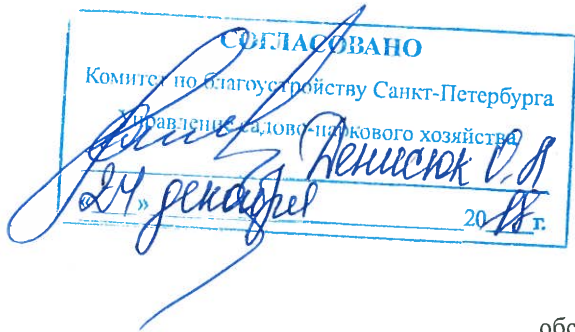 СОГЛАСОВАНО
Комитет по благоустройству Санкт-Петербурга
Управление садово-паркового хозяйства
Денисюк О.Я
«24» декабря 2018 г.
обс